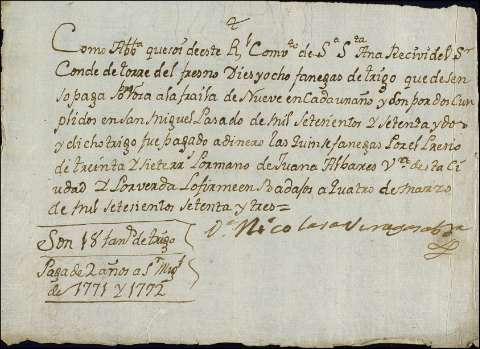 Como Abb.ª que soi de este R.l Comv.to de S.ª S.ta Ana Recivi del S.r
Conde de torre del fresno Dies y ocho fanegas de trigo que de sen
so paga Su S.ria a la frailia de Nueve en Cada un año y son por dos Cun
plidos en San Miguel Pasado de mil Setesientos Y Setenta y dos
y dicho trigo fue pagado a dinero las quinse fanegas Por el Presio
de treinta Y siete rr.s Por mano de Juana Albares V.na de esta Ci
udad Y Por verda Lo firme en Badajos a quatro de marzo
de mil Setesientos Setenta y tres=
D.ª Nicolasa Abb.ª
Son 18 fan.s de trigo
Paga de 2 años a S.n Mig.l
de 1771 Y 1772